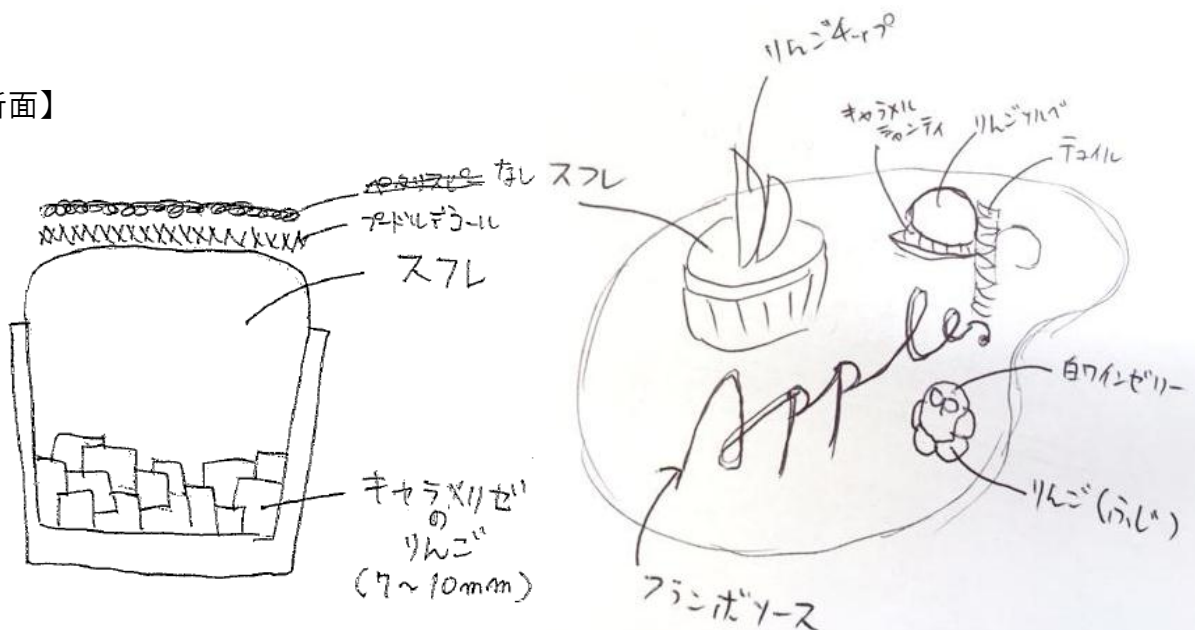 面】
なし
プードルデコール
スフレ
キャラメリゼ
の
りんご
(7~10mm)
りんごチップ
スフレ
キャラメル
シャンティ
りんごソルベ
テュイル
Apples
白ワインゼリー
りんご(ふじ)
フランボソース